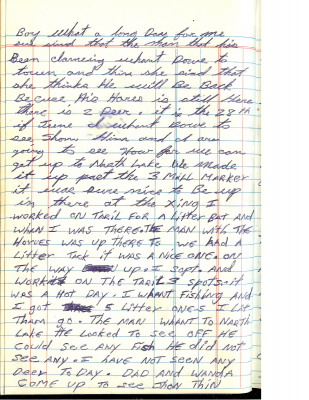 Boy what a long Day for me
sind that the man that his
Been clameing whant Dowe to
town and thin she sind that
she thinks He will Be Back
Becuse His Hores is still Here
There is 2 Deer. it is the 28th
if June I whant Dowe to
see Shon Him and I are
going to see How far we can
get up to North Lake We made
it up past the 3 Mill MARKER
it sure nice to Be up
in there at the XING I
WORKED ON TARIL FOR A LITTER BAT AND
WHEN I WAS THERE. THE MAN WITH THE
HORSES WAS UP THERE TO WE HAD A
LITTER TACK IT WAS A NICE ONE. ON
THE WAY UP. I SOPT. AND
WORKED ON THE TARIL 3 SPOTS. IT
WAS A HOT DAY. I WHANT FISHING AND
I GOT 5 LITTER ONES I LET
THAM GO. THE MAN WHANT TO NARTH
LAKE HE LOOKED TO SEE OFF HE
COULD SEE ANY FISH HE DID NOT
SEE ANY. I HAVE NOT SEEN ANY
DEER TO DAY. DAD AND WANDA
COME UP TO SEE THIN